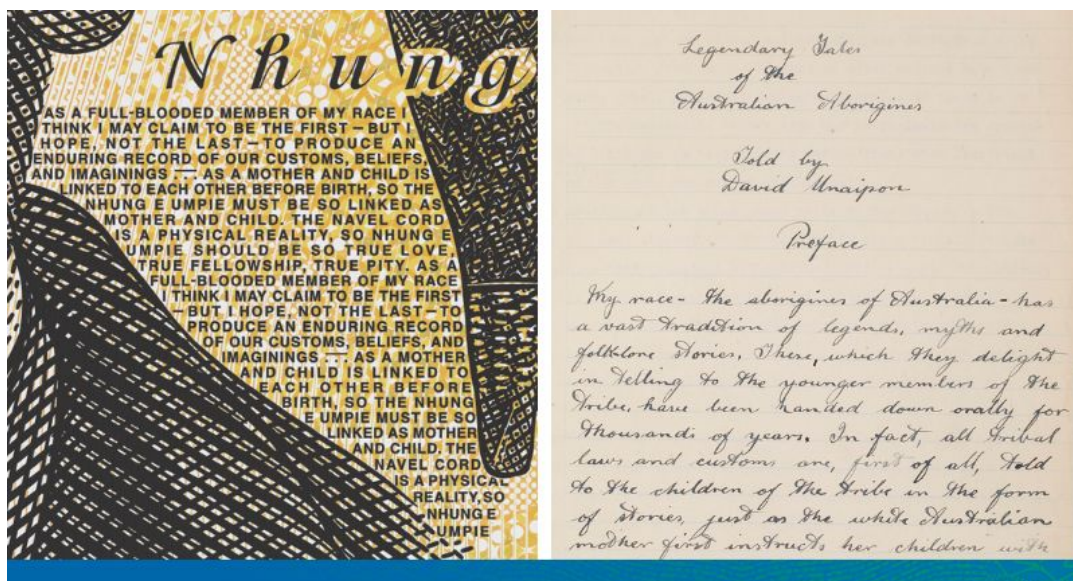 Nhung
AS A FULL-BLOODED MEMBER OF MY RACE I
THINK I MAY CLAIM TO BE THE FIRST – BUT I
HOPE, NOT THE LAST – TO PRODUCE AN
ENDURING RECORD OF OUR CUSTOMS, BELIEFS,
AND IMAGININGS ... AS A MOTHER AND CHILD IS
LINKED TO EACH OTHER BEFORE BIRTH, SO THE
NHUNG E UMPIE MUST BE SO LINKED AS
MOTHER AND CHILD. THE NAVEL CORD
IS A PHYSICAL REALITY, SO NHUNG E
UMPIE SHOULD BE SO TRUE LOVE,
TRUE FELLOWSHIP, TRUE PITY. AS A
FULL-BLOODED MEMBER OF MY RACE
I THINK I MAY CLAIM TO BE THE FIRST
– BUT I HOPE, NOT THE LAST – TO
PRODUCE AN ENDURING RECORD
OF OUR CUSTOMS, BELIEFS, AND
IMAGININGS ... AS A MOTHER
AND CHILD IS LINKED TO
EACH OTHER BEFORE
BIRTH, SO THE NHUNG
E UMPIE MUST BE SO
LINKED AS MOTHER
AND CHILD. THE
NAVEL CORD
IS A PHYSICAL
REALITY, SO
NHUNG E
UMPIE
Legendary Tales
of the
Australian Aborigines
Told by
David Unaipon
Preface
My race - the aborigines of Australia - has
a vast tradition of legends, myths and
folklore stories. These, which they delight
in telling to the younger members of the
tribe, have been handed down orally for
thousands of years. In fact, all tribal
laws and customs are, first of all, told
to the children of the tribe in the form
of stories, just as the white Australian
mother first instructs her children with